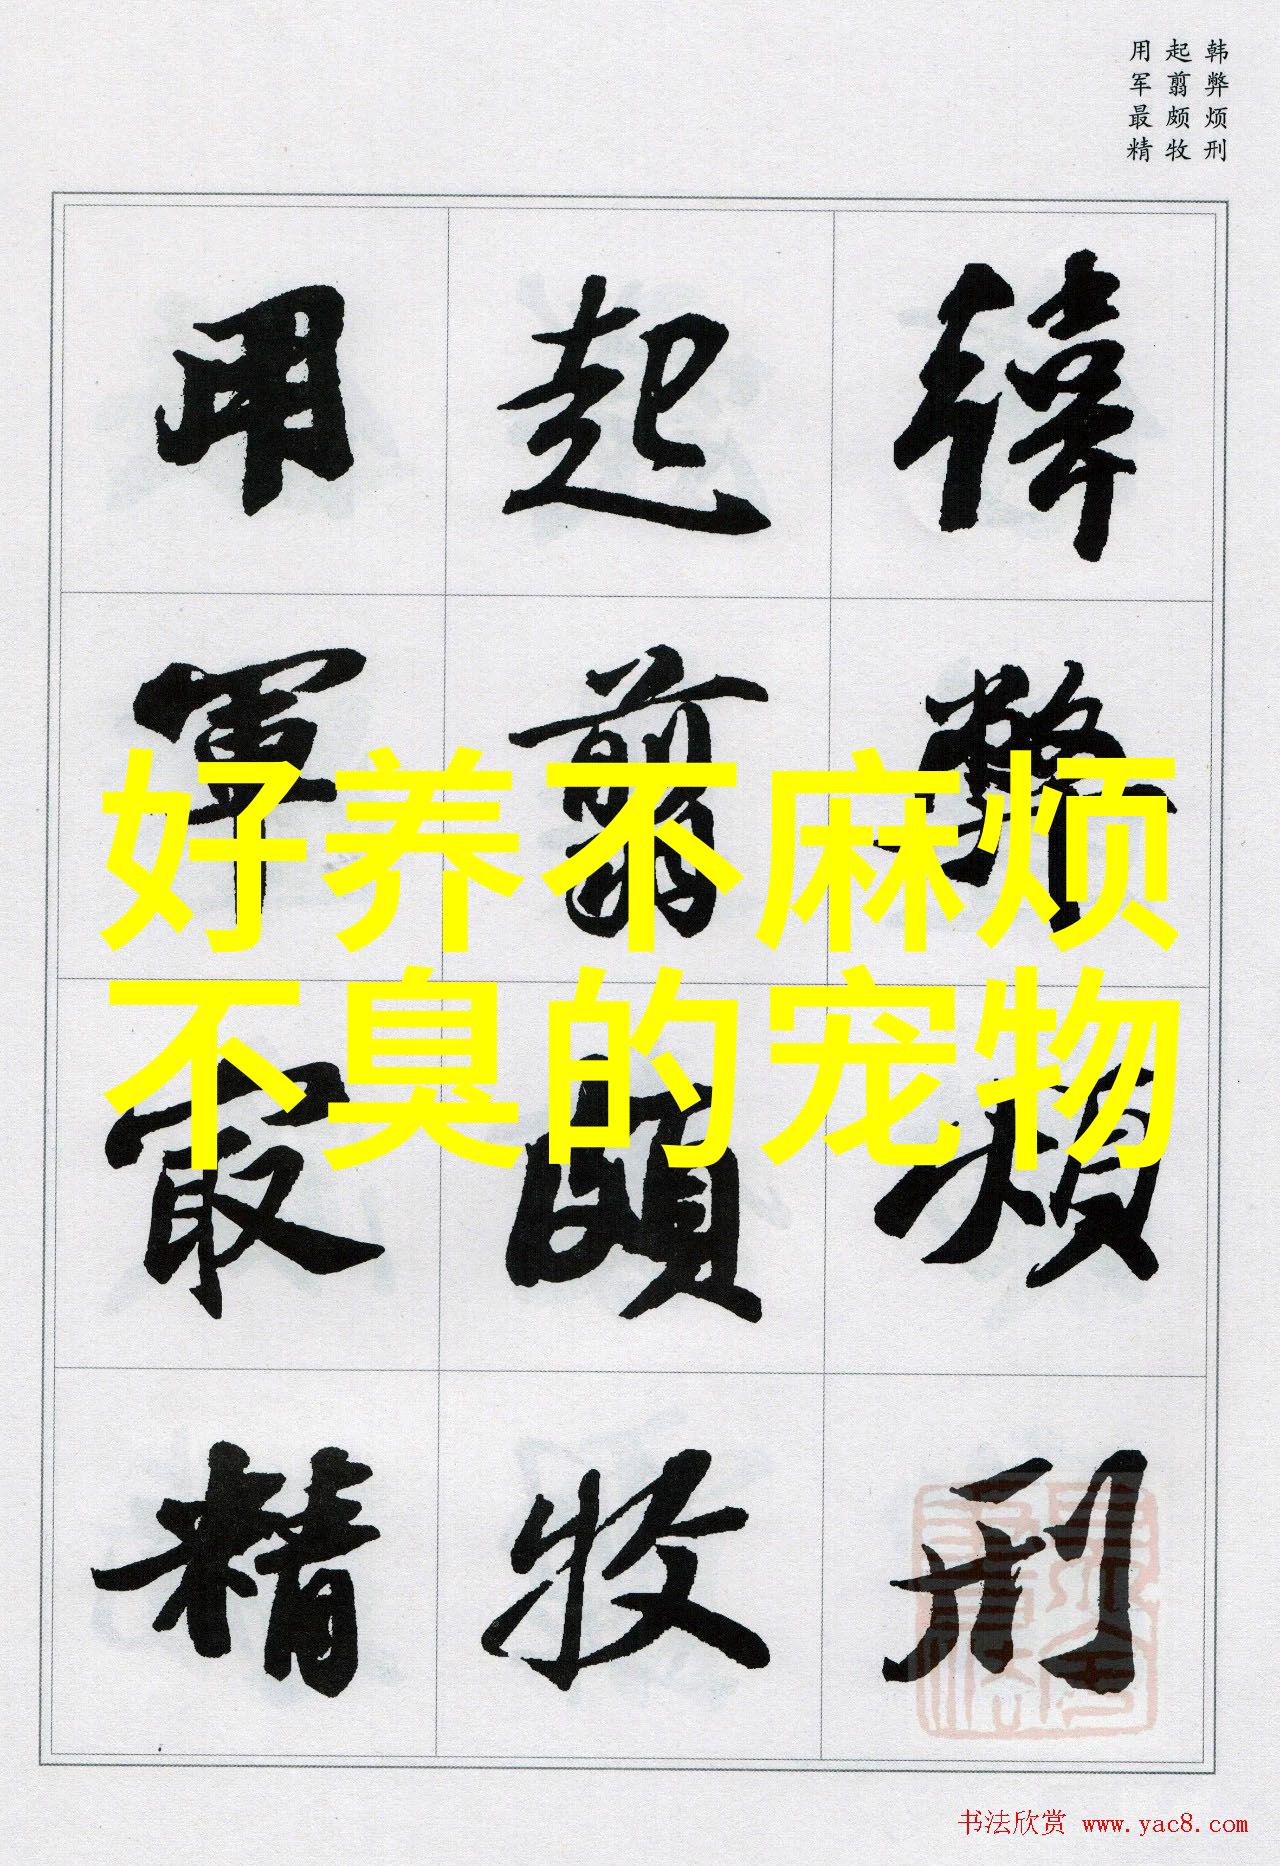 韩弊烦刑
起翦颇牧
用军最精
韓弊煩刑
起翦頗牧
用軍最精
好养不麻烦
不臭的宠物
书法欣赏 www.yac8.com